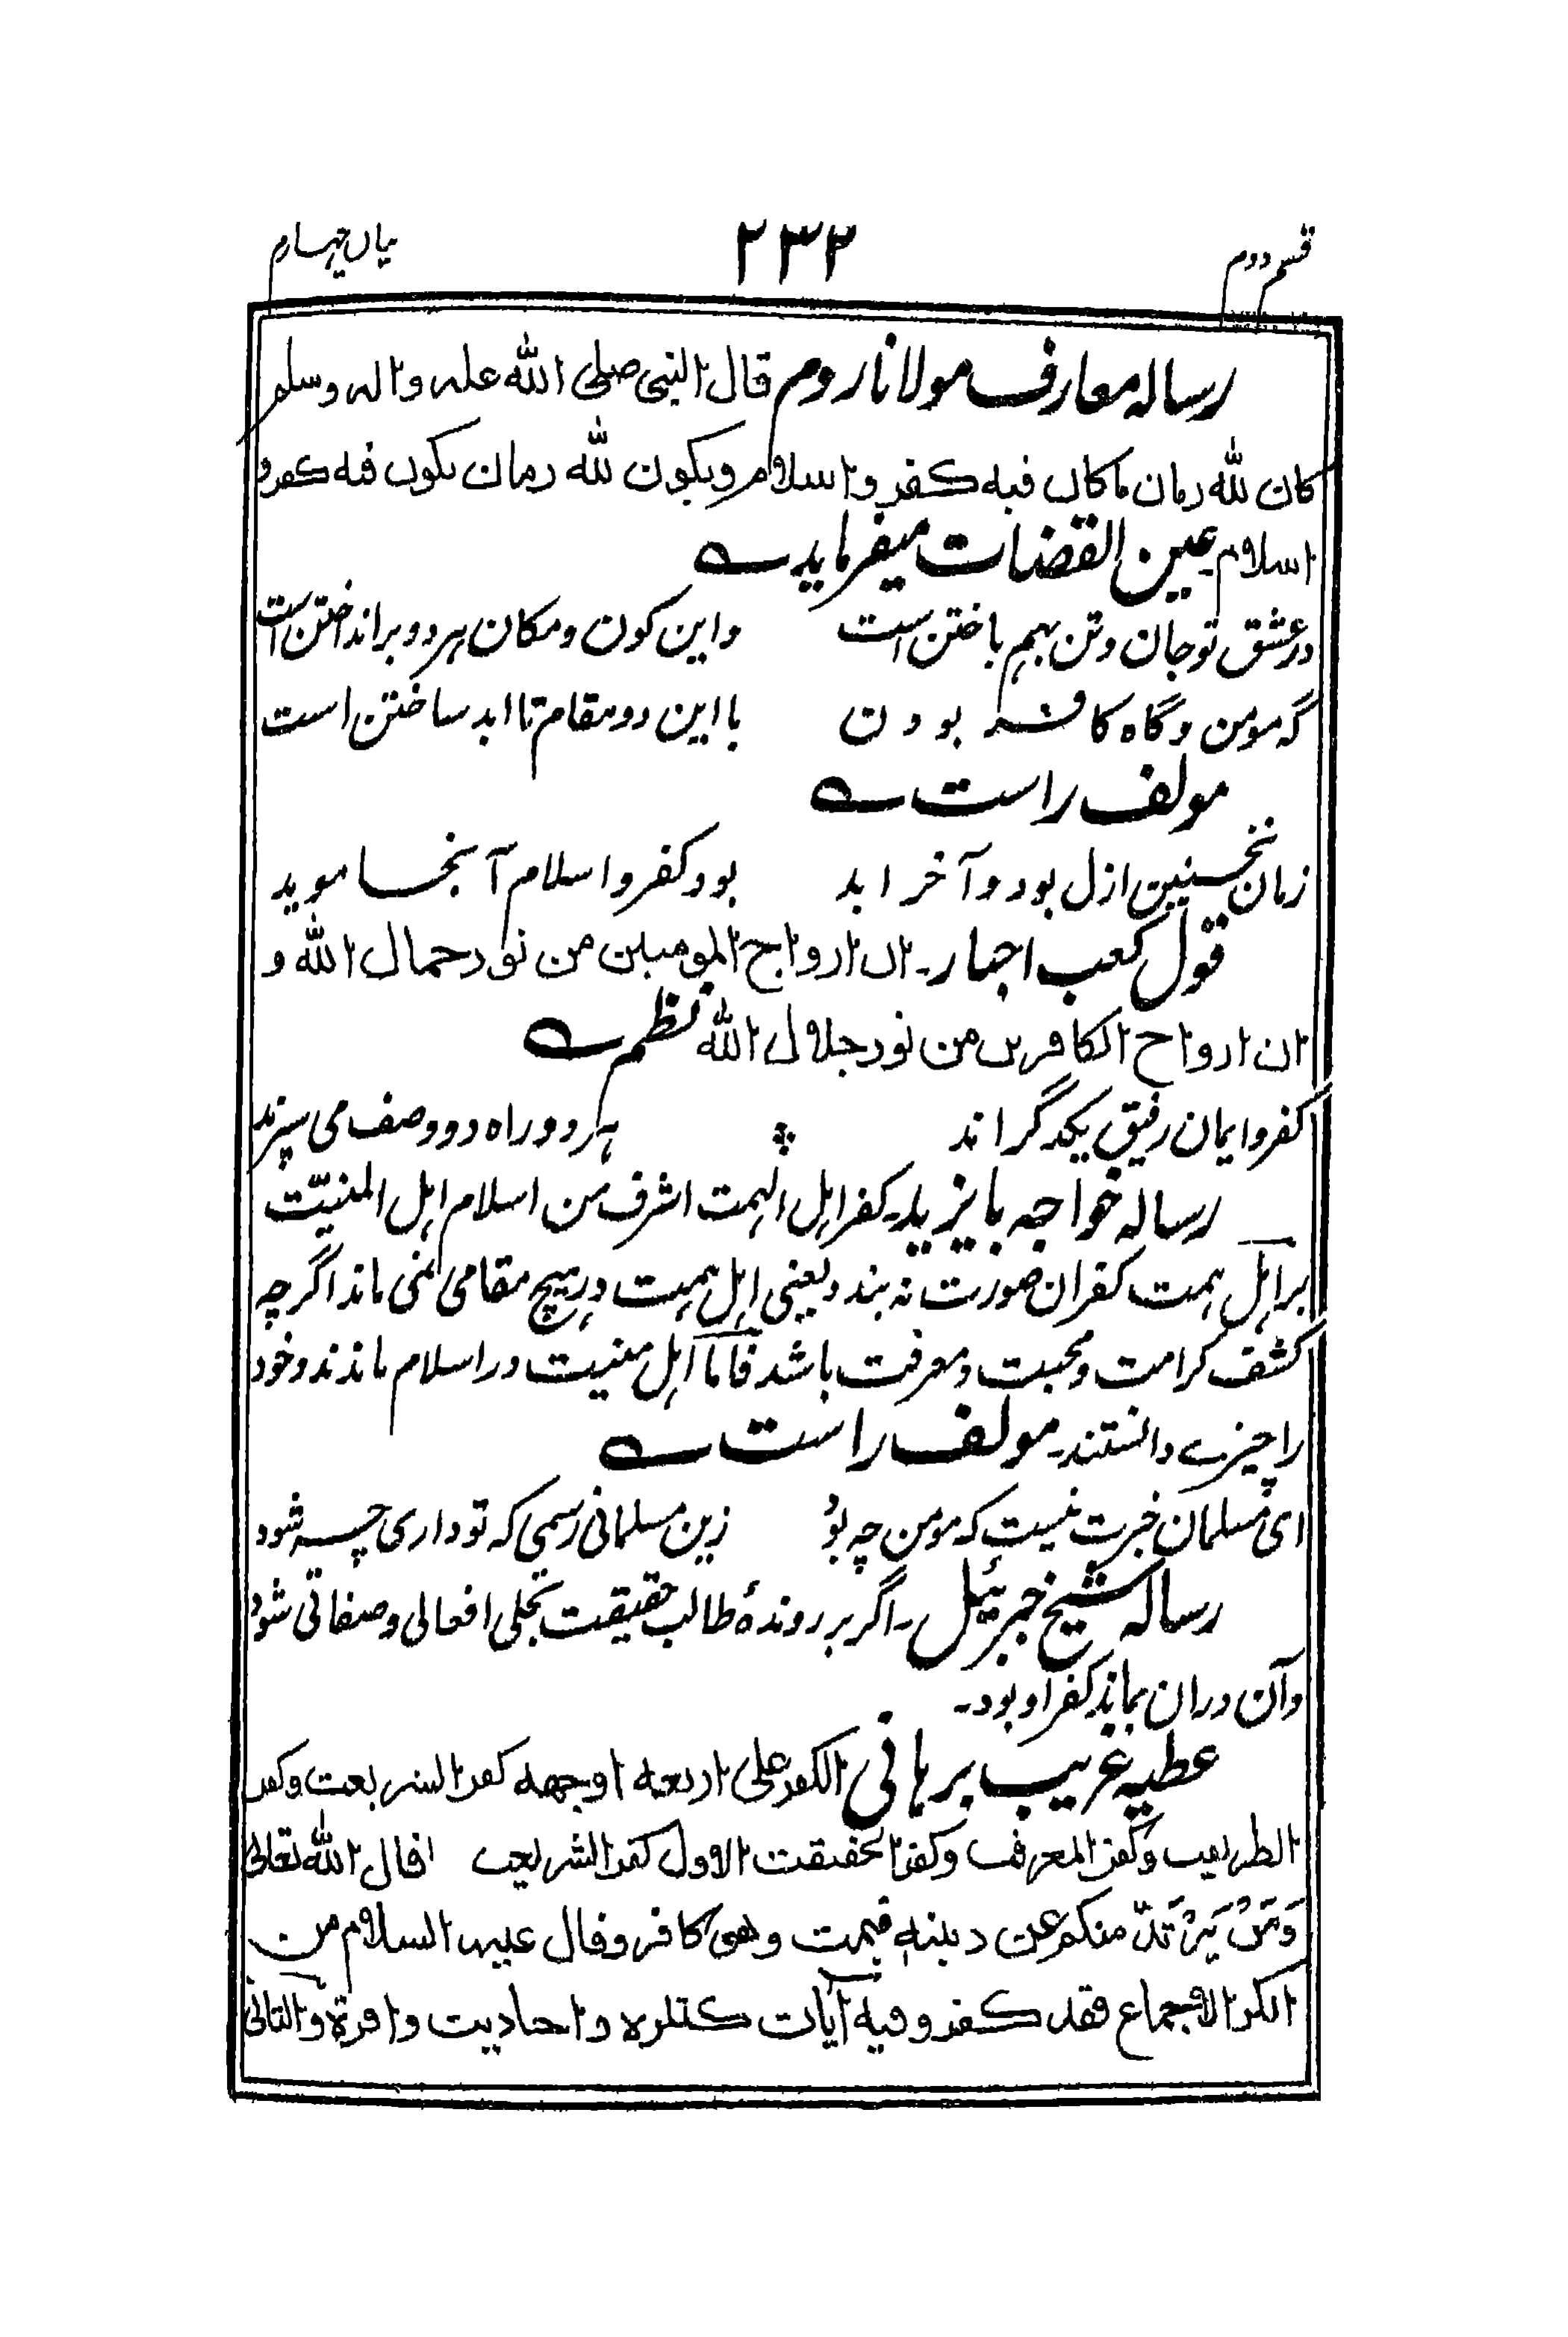 قسم دوم
۲۳۲
بیان چہارم
رسالہ معارف مولانا روم قال النبی صلی اللہ علیہ والہ وسلم
کان للہ زمان ما کان فیہ کفر و اسلام ویکون للہ زمان یکون فیہ کفر و
اسلام عین القضات میفرماید
در عشق تو جان و تن بہم باختن است واین کون و مکان ہر دو برانداختن است
گہ مومن و گاہ کافر بودن با این دو مقام تا ابد ساختن است
مولف راست
زمان نخستین ازل بود و آخر ابد بود کفر و اسلام آنجا موید
قول کعب احبار۔ ان ارواح المومنین من نور جمال اللہ و
ان ارواح الکافرین من نور جلال اللہ نظم
کفر و ایمان رفیق یکدگر اند ہر دو راہ دو وصف می سپرند
رسالہ خواجہ بایزید۔ کفر اہل الہمت اشرف من اسلام اہل المنیّت
بر اہل ہمت کفران صورت نہ بندد یعنی اہل ہمت در ہیچ مقامی نمی ماند اگرچہ
کشف کرامت و محبت و معرفت باشد فاما اہل منیت در اسلام ماندند و خود
را چیزے دانستند۔ مولف راست
ای مسلمان خبرت نیست کہ مومن چہ بوُد زین مسلمانی رسمی کہ تو داری چہ شود
رسالہ شیخ جبرئیل۔ اگر بر روندۂ طالب حقیقت تجلی افعالی و صفاتی شود
وآن دران بماند کفر او بود۔
عطیہ غریب برہانی الکفر علی اربعہ اوجہہ کفر الشریعت وکفر
الطریقت وکفر المعرفت وکفر الحقیقت الاول کفر الشریعت قال اللہ تعالی
وَمَنْ یَرْتَدّ منکم عن دینہٖ فیمت وھو کافر وقال علیہ السلام من
انکر الاجماع فقد کفر وفیہ آیات کثیرہ و احادیث وافرۃ والثانی